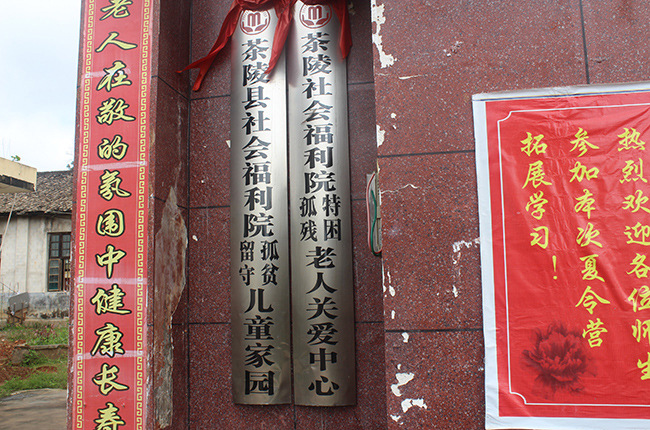 老人在敬的氛围中健康长春
茶陵县社会福利院孤贫留守儿童家园
茶陵社会福利院特困孤残老人关爱中心
热烈欢迎各位师生
参加本次夏令营
拓展学习！